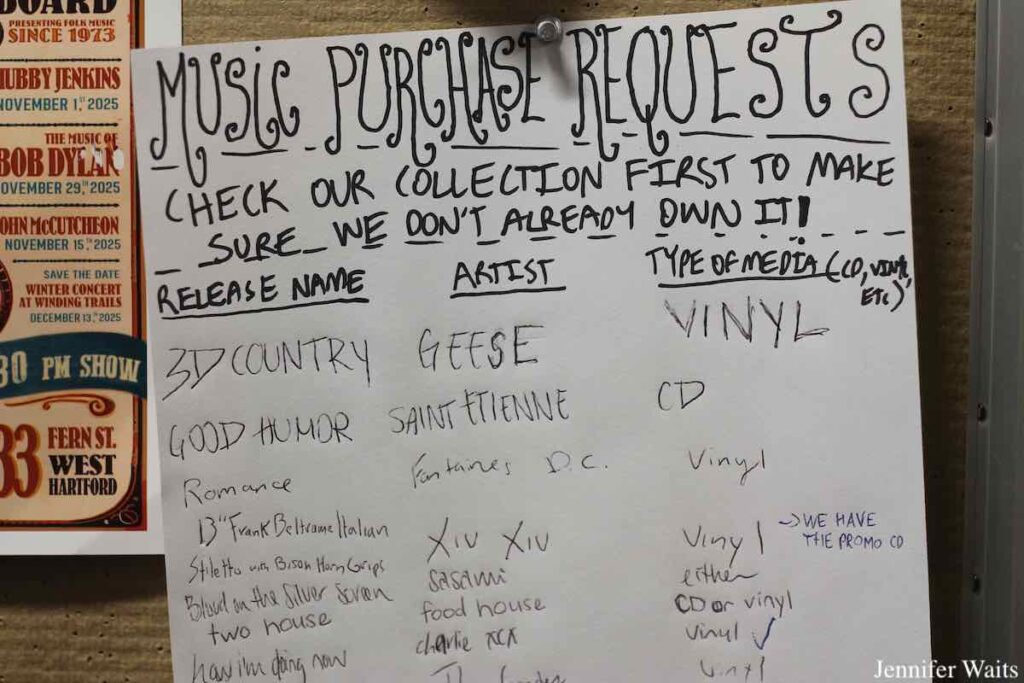 BOARD
PRESENTING FOLK MUSIC
SINCE 1973
HUBBY JENKINS
NOVEMBER 1, ST 2025
THE MUSIC OF
BOB DYLAN
NOVEMBER 29, 2025
JOHN McCUTCHEON
NOVEMBER 15, 2025
SAVE THE DATE
WINTER CONCERT
AT WINDING TRAILS
DECEMBER 13, 2025
30 PM SHOW
33 FERN ST.
WEST
HARTFORD
MUSIC PURCHASE REQUESTS
CHECK OUR COLLECTION FIRST TO MAKE
SURE WE DON'T ALREADY OWN IT!
RELEASE NAME ARTIST TYPE OF MEDIA (CD, VINYL,
ETC)
3D COUNTRY GEESE VINYL
GOOD HUMOR SAINT ETIENNE CD
Romance Fontaines D.C. Vinyl
13" Frank Beltrame Italian
Stiletto with Bison Horn Grips XIV XIV Vinyl → WE HAVE
THE PROMO CD
Blood on the Silver Screen sasami either
two house food house CD or vinyl
how i'm doing now charlie XCX vinyl ✓
vinyl
Jennifer Waits